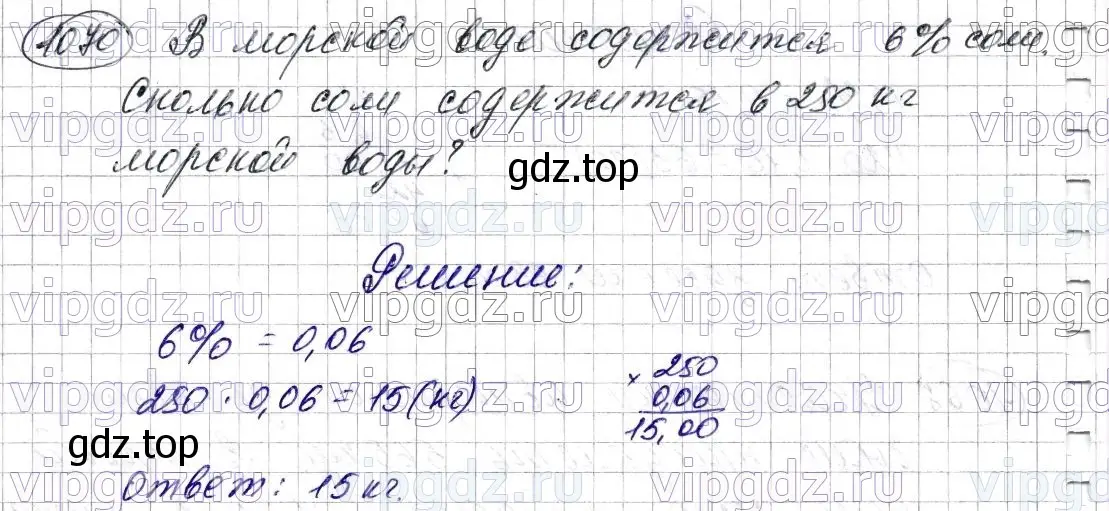 1070 В морской воде содержится 6% соли.
Сколько соли содержится в 250 кг
морской воды?
gdz.top
Решение:
6% = 0,06
250 · 0,06 = 15 (кг)
× 250
0,06
15,00
gdz.top
Ответ: 15 кг.
vipgdz.ru